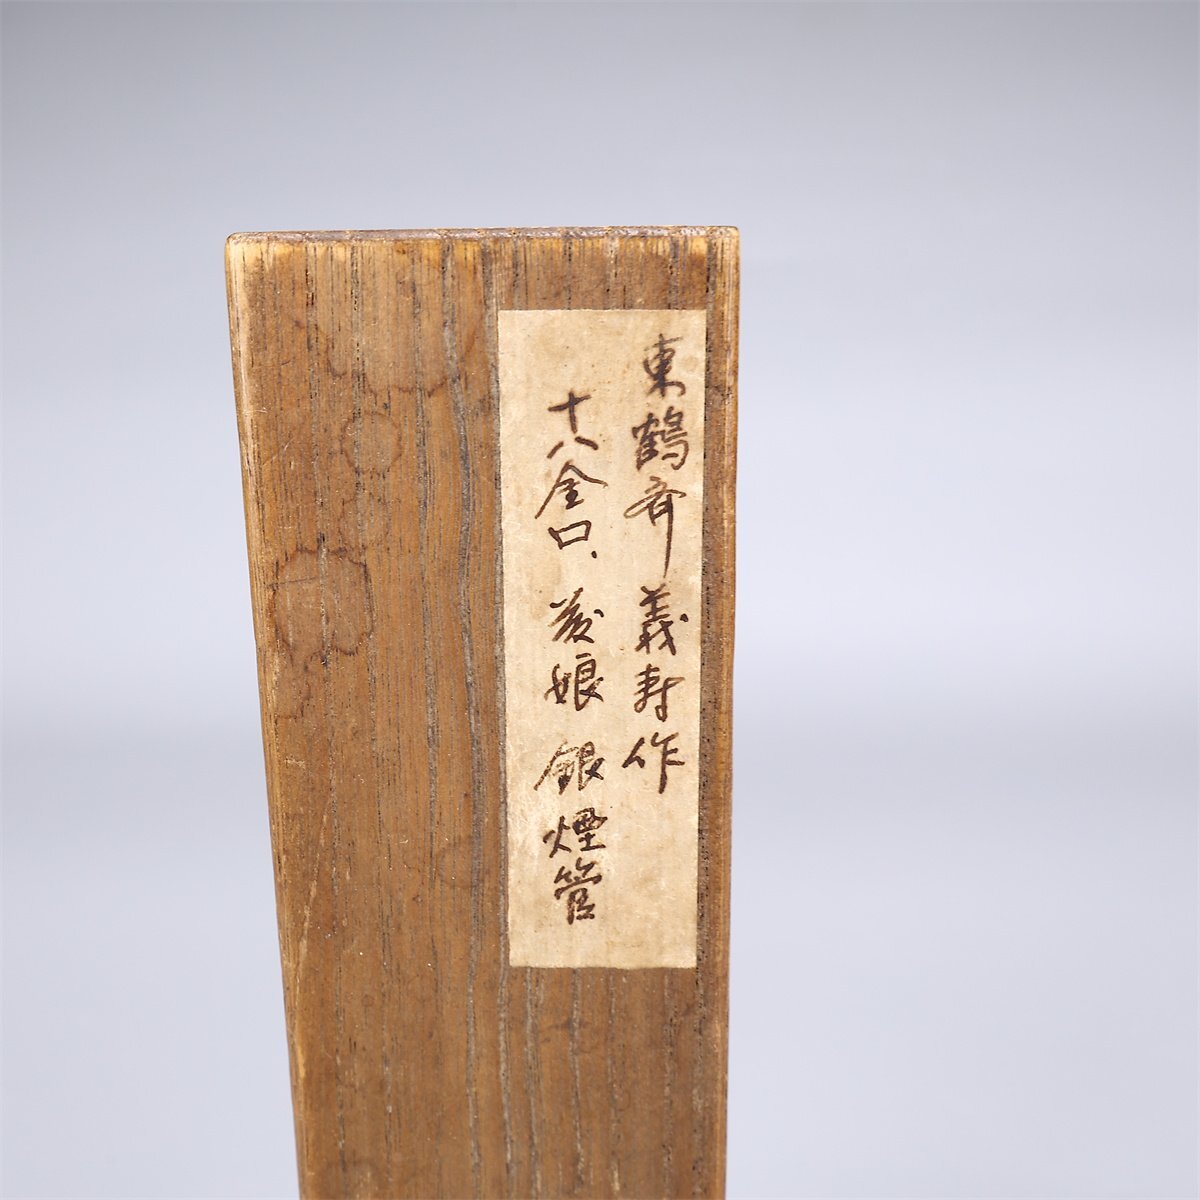 東鶴斉 義寿作
十八金口、娘 銀煙管